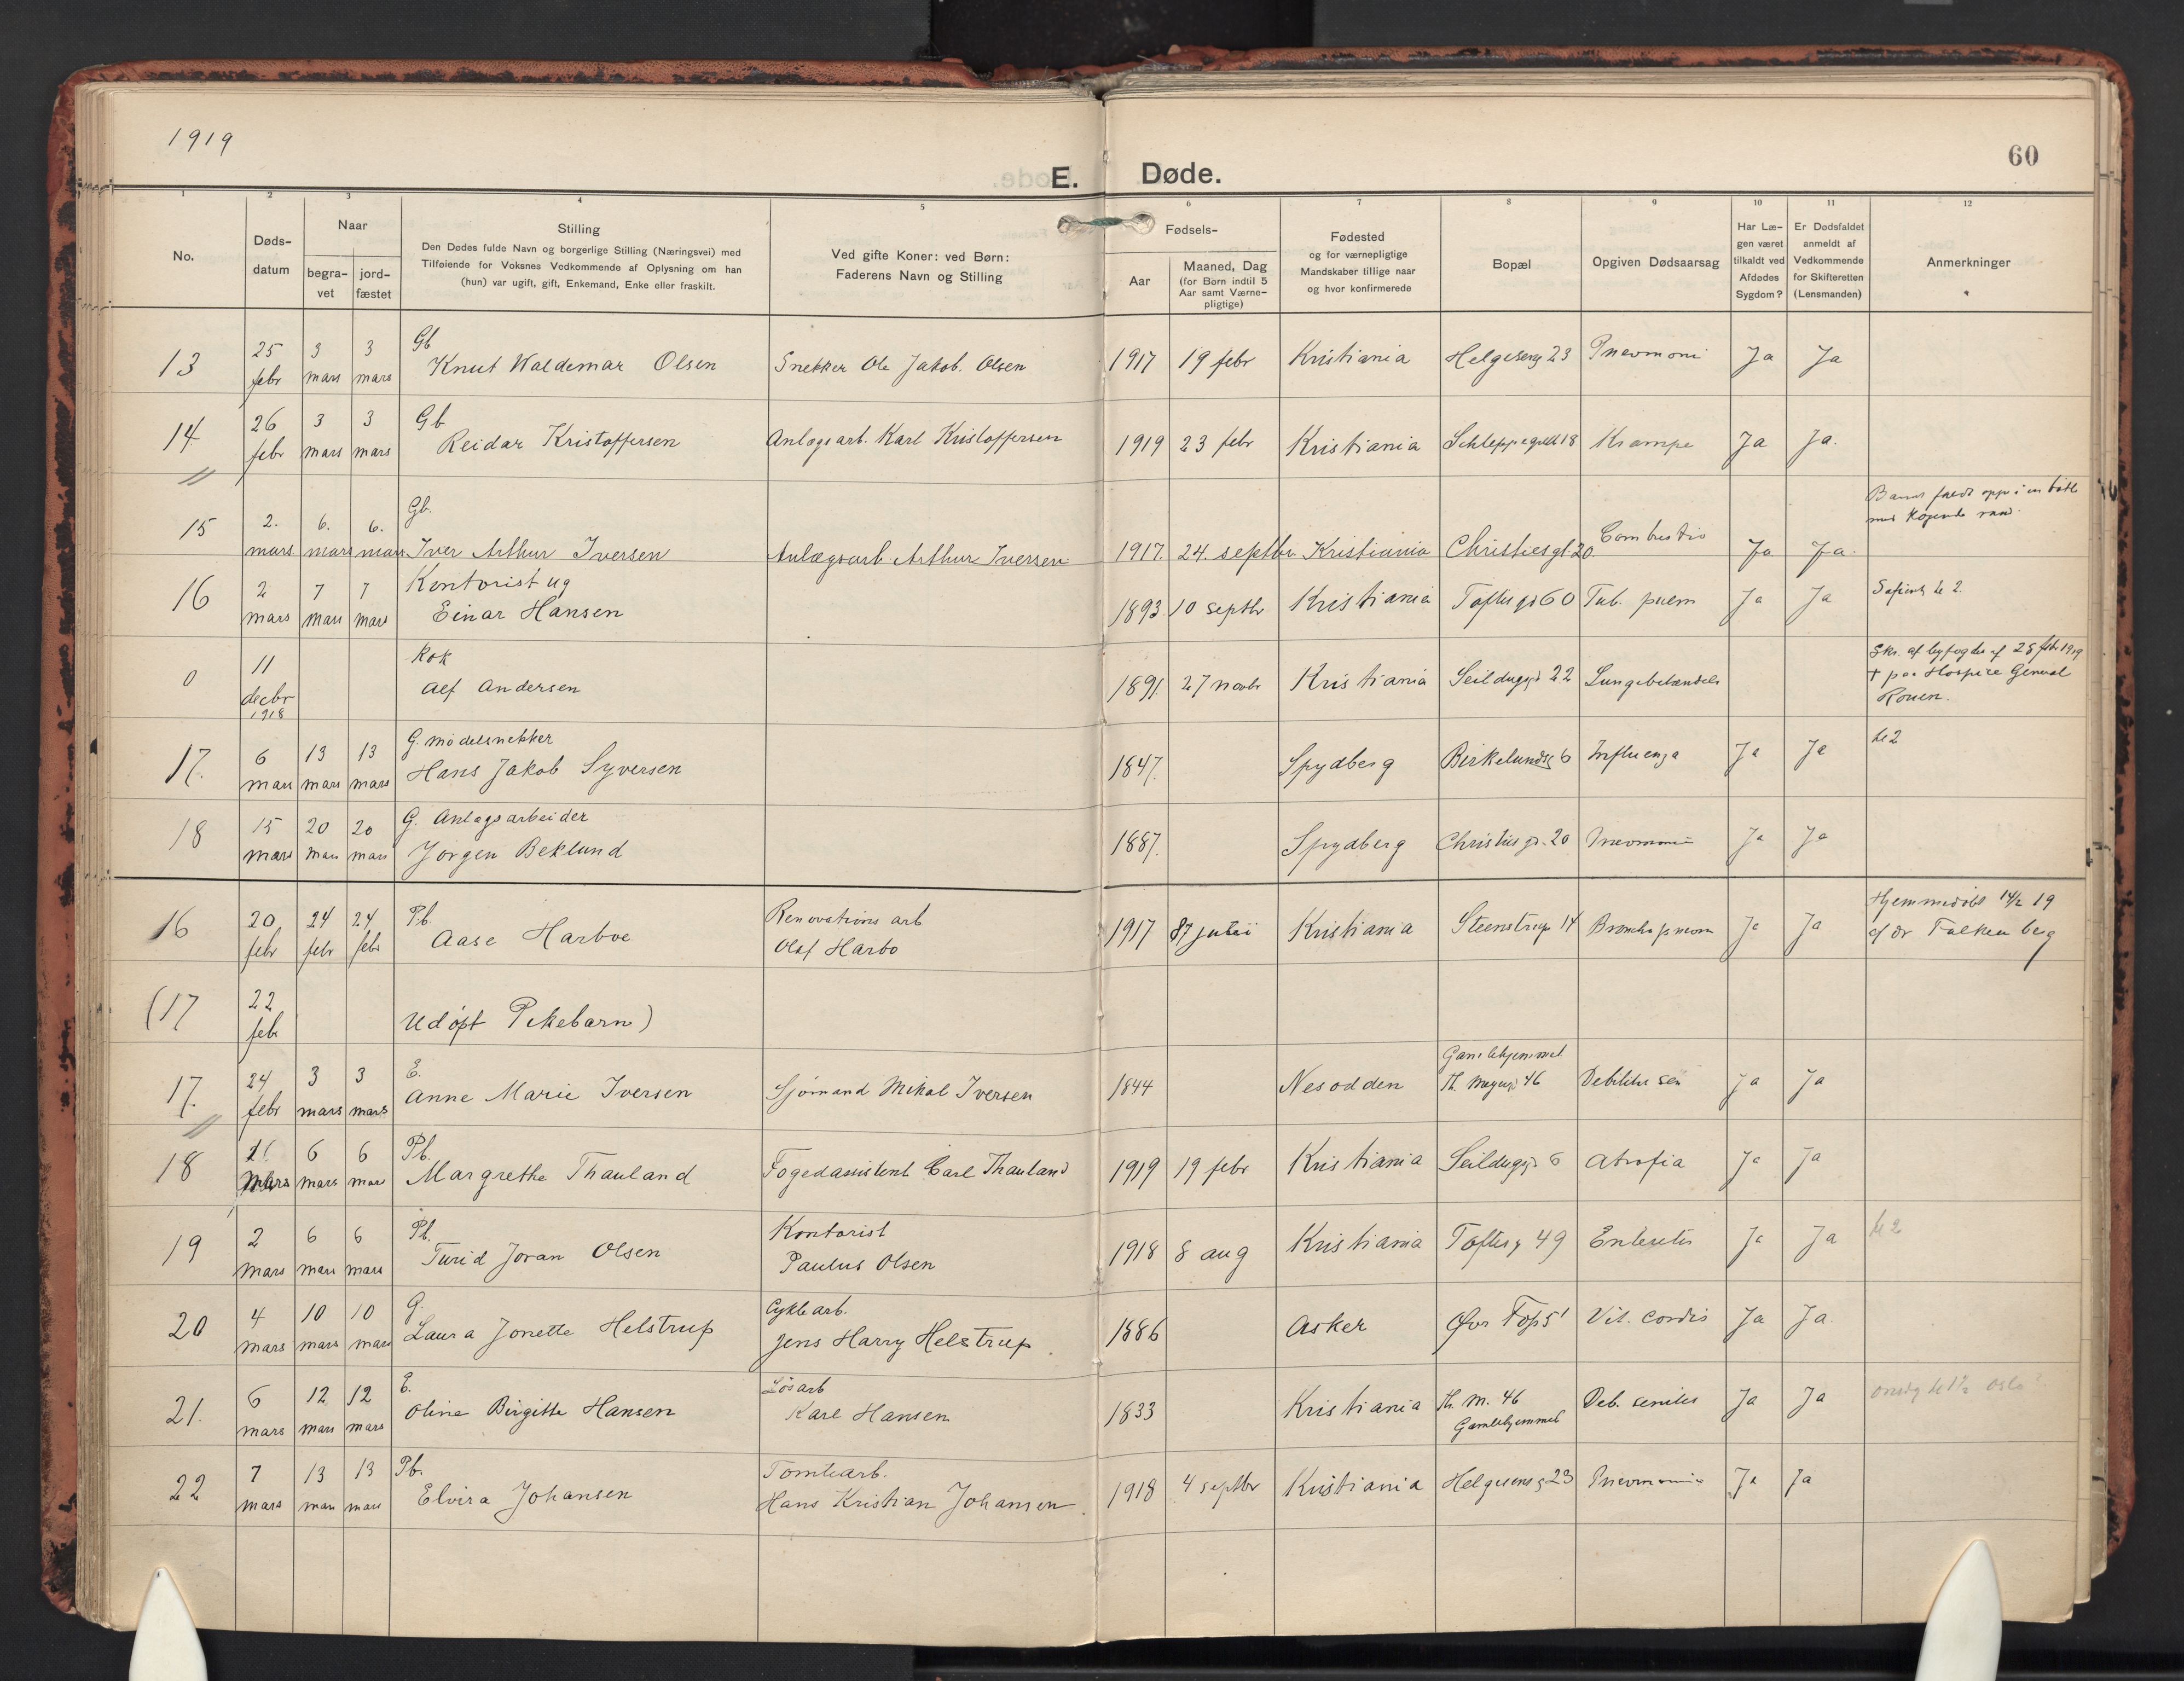 1919
E. Døde.
60
1 2 3 4 5 6 7 8 9 10 11 12
No.
Døds-
datum
Naar
begra-
vet
jord-
fæstet
Stilling
Den Dødes fulde Navn og borgerlige Stilling (Næringsvei) med
Tilføiende for Voksnes Vedkommende af Oplysning om han
(hun) var ugift, gift, Enkemand, Enke eller fraskilt.
Ved gifte Koner: ved Børn:
Faderens Navn og Stilling
Fødsels-
Aar
Maaned, Dag
(for Børn indtil 5
Aar samt Værne-
pligtige)
Fødested
og for værnepligtige
Mandskaber tillige naar
og hvor konfirmerede
Bopæl
Opgiven Dødsaarsag
Har Læ-
gen været
tilkaldt ved
Afdødes
Sygdom?
Er Dødsfaldet
anmeldt af
Vedkommende
for Skifteretten
(Lensmanden)
Anmerkninger
13 25 febr 3 mars 3 mars Gb Knut Waldemar Olsen Snekker Ole Jakob. Olsen 1917 19 febr Kristiania Helgesensg 23 Pneumoni Ja Ja
14 26 febr 3 mars 3 mars Gb Reidar Kristoffersen Anlægsarb. Karl Kristoffersen 1919 23 febr Kristiania Schleppegrellsg 18 Krampe Ja Ja.
15 2. mars 6. mars 6. mars Gb. Iver Arthur Iversen Anlægsarb Arthur Iversen 1917. 24. septbr Kristiania Christiesgt 20 Combustio Ja Ja.
Barnet faldt opp i en bøtte
med kogende vand.
16 2 mars 7 mars 7 mars Kontorist ug Einar Hansen 1893 10 septbr Kristiania Toftesgd 60 Tub. pulm Ja Ja
0 11 decbr 1918 Kok Alf Andersen 1891 27 novbr Kristiania Seildugsgd 22 Lungebetændels
Skr. af byfogden af 28 febr 1919
+ paa Hospice General
Rouen.
17. 6 mars 13 mars 13 mars G. modelsnekker Hans Jakob Syversen 1847. Spydberg Birkelundsg 6 Influenza Ja Ja
18 15 mars 20 mars 20 mars G. Anlægsarbeider Jørgen Beklund 1887. Spydberg Christiesgd. 20 Pneumoni Ja Ja
16 20 febr 24 febr 24 febr Pb. Aase Harboe Renovations arb Olaf Harbo 1917 Kristiania Steenstrupsg 14 Bronchopneum Ja Ja
Hjemmedøbt 14/2 19
af dr Falkenberg
(17 22 feb Udøpt Pikebarn)
17. 24 febr 3 mars 3 mars E. Anne Marie Iversen Sjømand Mikal Iversen 1844 Nesodden Gamlehjemmet Th. Meyersgd 46 Debilitas sen Ja Ja
18 mars 6 mars 6 mar Pb. Margrethe Thauland Fogedassistent Carl Thauland 1919 19 febr Kristiania Seildugsgd 6 Atrofia Ja Ja
19 2 mars 6 mars 6 mars Pb. Turid Joran Olsen Kontorist Paulus Olsen 1918 8 aug Kristiania Toftesg 49 Enteritis Ja Ja
20 4 mars 10 mars 10 mars G. Laura Jonette Helstrup Cyklearb. Jens Harry Helstrup 1886 Asker Vit. cordis Ja Ja.
21. 6 mars 12 mars 12 mars E. Oline Birgitte Hansen Løsarb Karl Hansen 1833 Kristiania Th. M. 46 Gamlehjemmet Deb. senilis Ja Ja
22 7 mars 13 mars 13 mars Pb. Elvira Johansen Tomtearb. Hans Kristian Johansen 1918 4 septbr Kristiania Helgesensg 23 Pneumonia Ja Ja